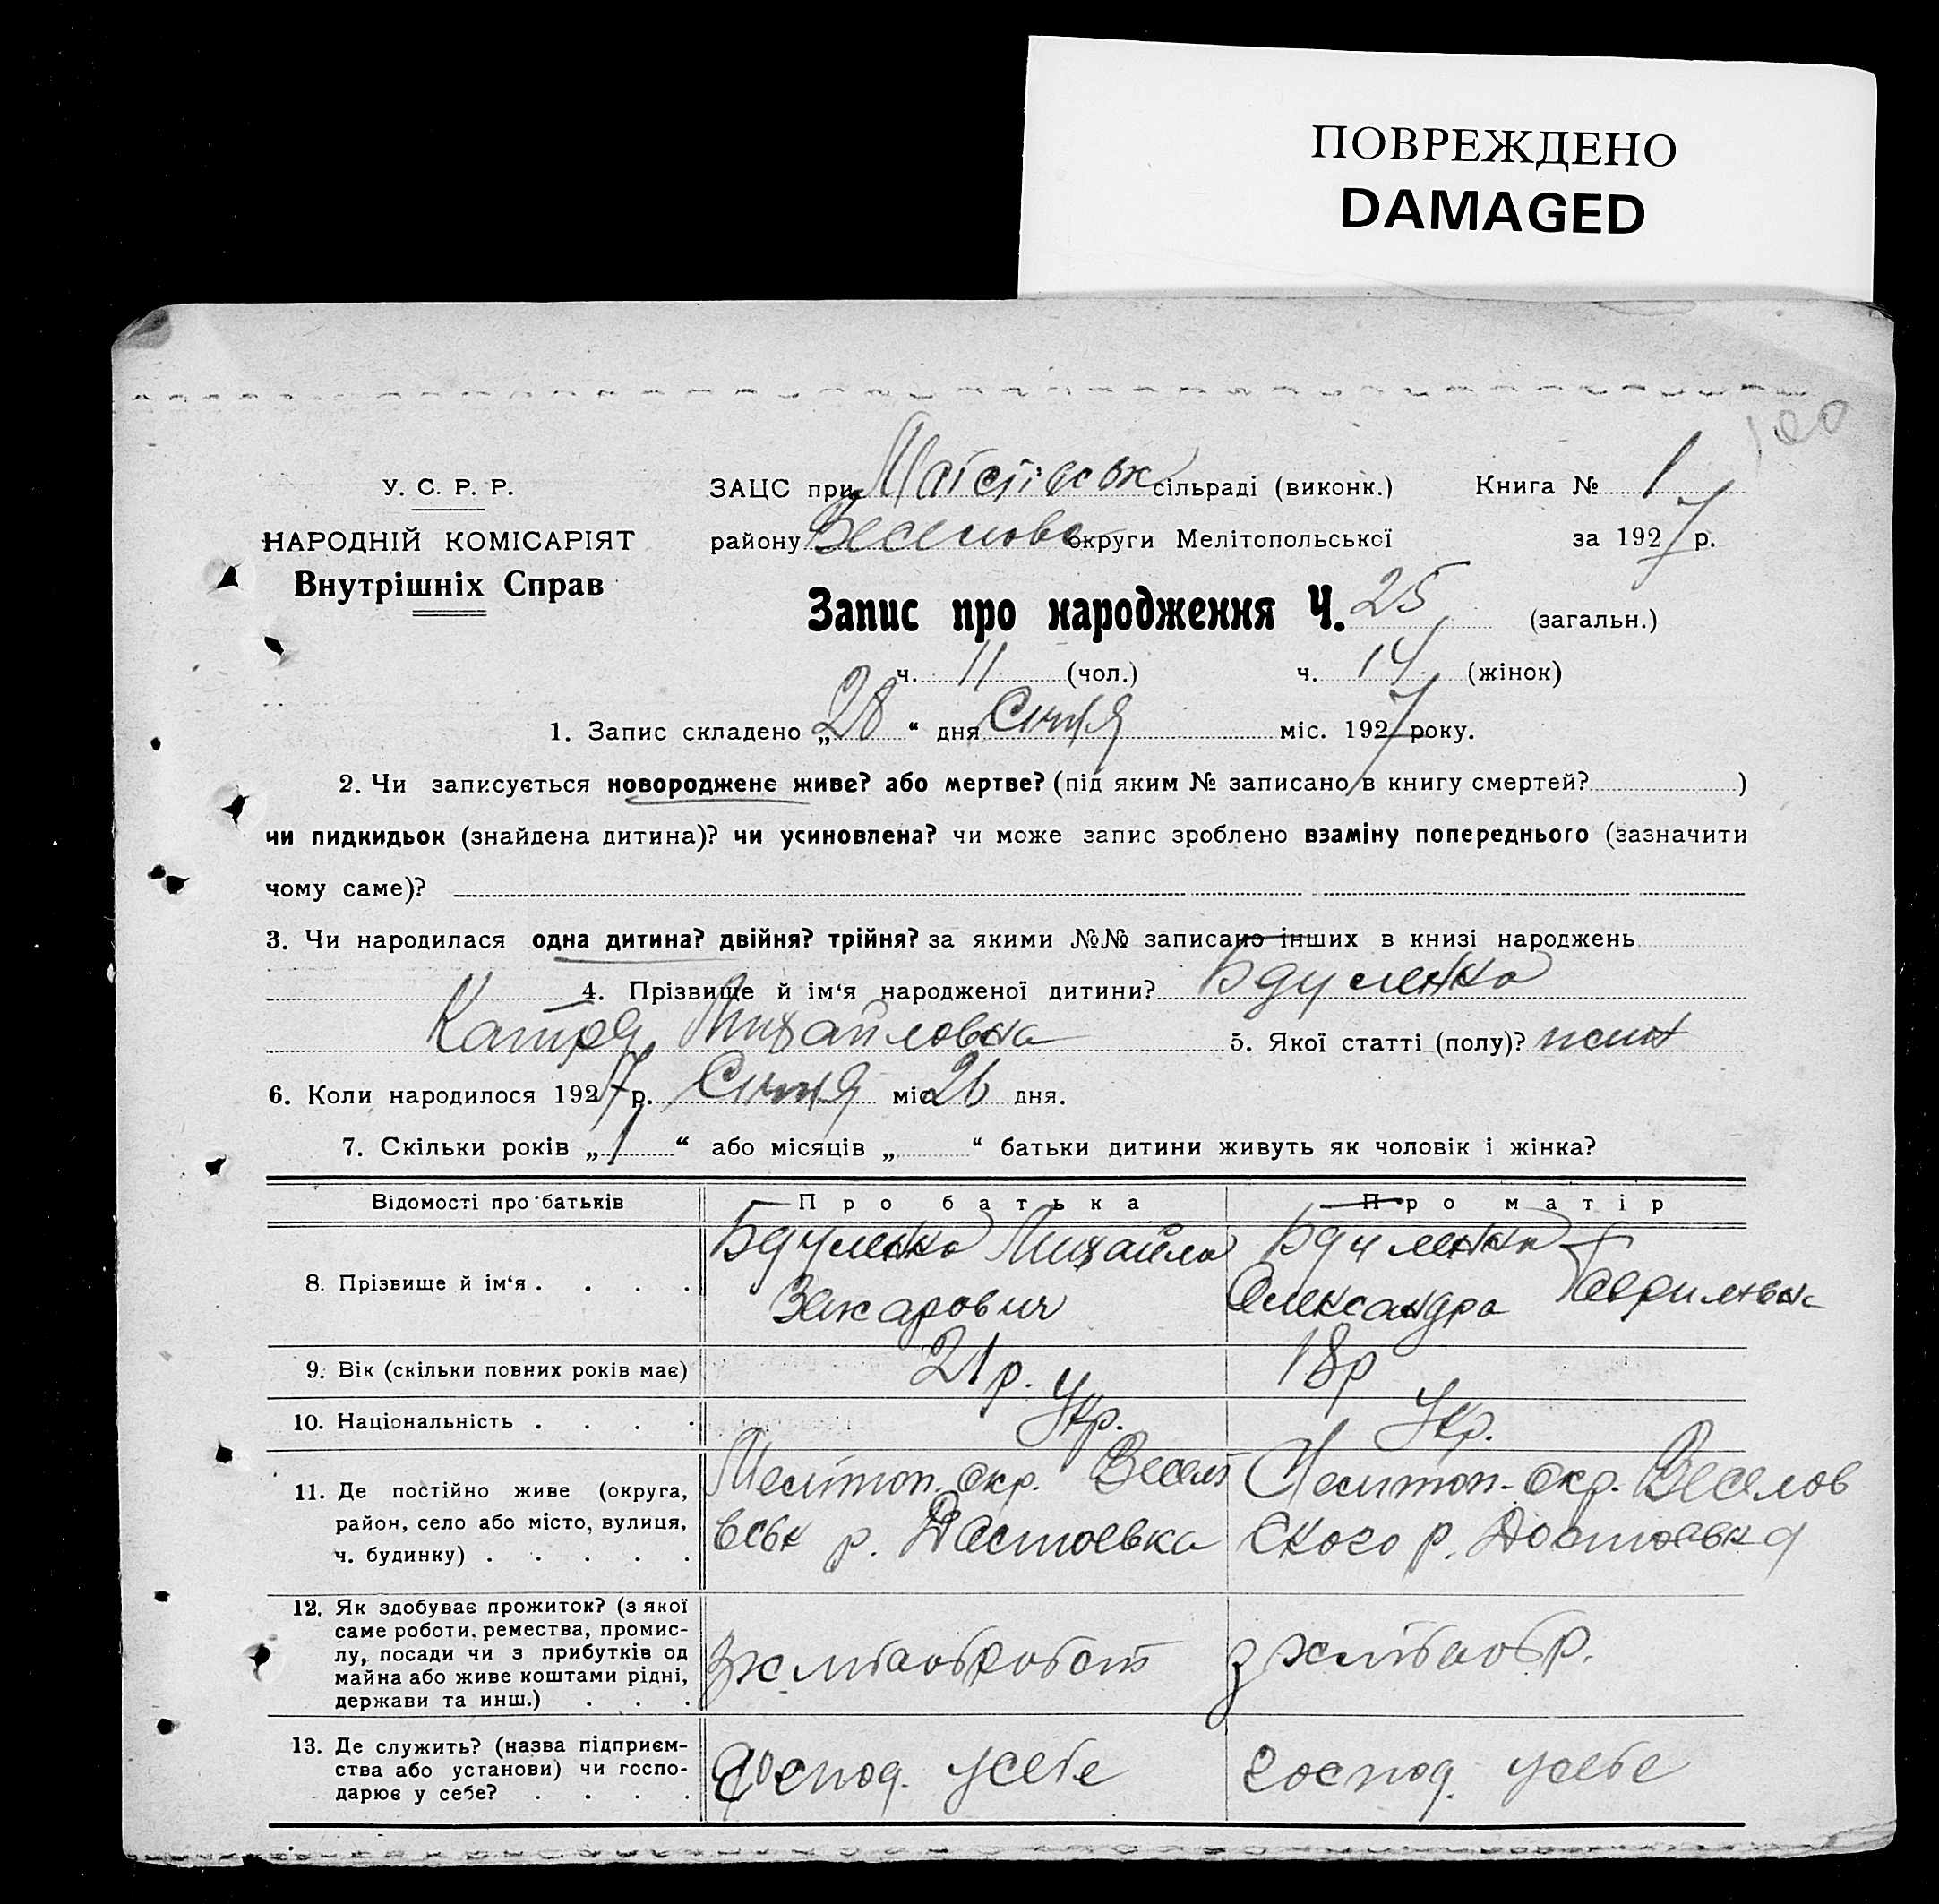 ПОВРЕЖДЕНО
DAMAGED
100
У. С. Р. Р.
НАРОДНІЙ КОМІСАРІЯТ
Внутрішніх Справ
ЗАЦС при сільраді (виконк.) Книга № 1
району Веселовс округи Мелітопольської за 1927 р.
Запис про народження Ч. 25 (загальн.)
ч. 11 (чол.) ч. 14 (жінок)
1. Запис складено „28“ дня Січня міс. 1927 року.
2. Чи записується новороджене живе? або мертве? (під яким № записано в книгу смертей? )
чи пидкидьок (знайдена дитина)? чи усиновлена? чи може запис зроблено взаміну попереднього (зазначити
чому саме)?
3. Чи народилася одна дитина? двійня? трійня? за якими №№ записано інших в книзі народжень
4. Прізвище й ім‘я народженої дитини? Бдуленко
Катря Михайловна 5. Якої статті (полу)? жіт
6. Коли народилося 1927 р. Січня міс 26 дня.
7. Скільки років „1“ або місяців „ “ батьки дитини живуть як чоловік і жінка?
Відомості про батьків Про батька Про матір
8. Прізвище й ім‘я . . . . Бдуленко Михайло Бдуленко
Захарович Олександра Гавриловна
9. Вік (скільки повних років має) 21 р. 18 р
10. Національність . . . . Укр. Укр.
11. Де постійно живе (округа, Мелітоп. окр. Весел Мелітоп. окр. Веселов
район, село або місто, вулиця, р. Достоевка ского р. Достоевка
ч. будинку) . . . . .
12. Як здобуває прожиток? (з якої
саме роботи, ремества, промис-
лу, посади чи з прибутків од з хлібаобробот з хлібаобр.
майна або живе коштами рідні,
держави та инш.) . . .
13. Де служить? (назва підприєм-
ства або установи) чи госпо- господ. усебе господ. усебе
дарює у себе? . . . .